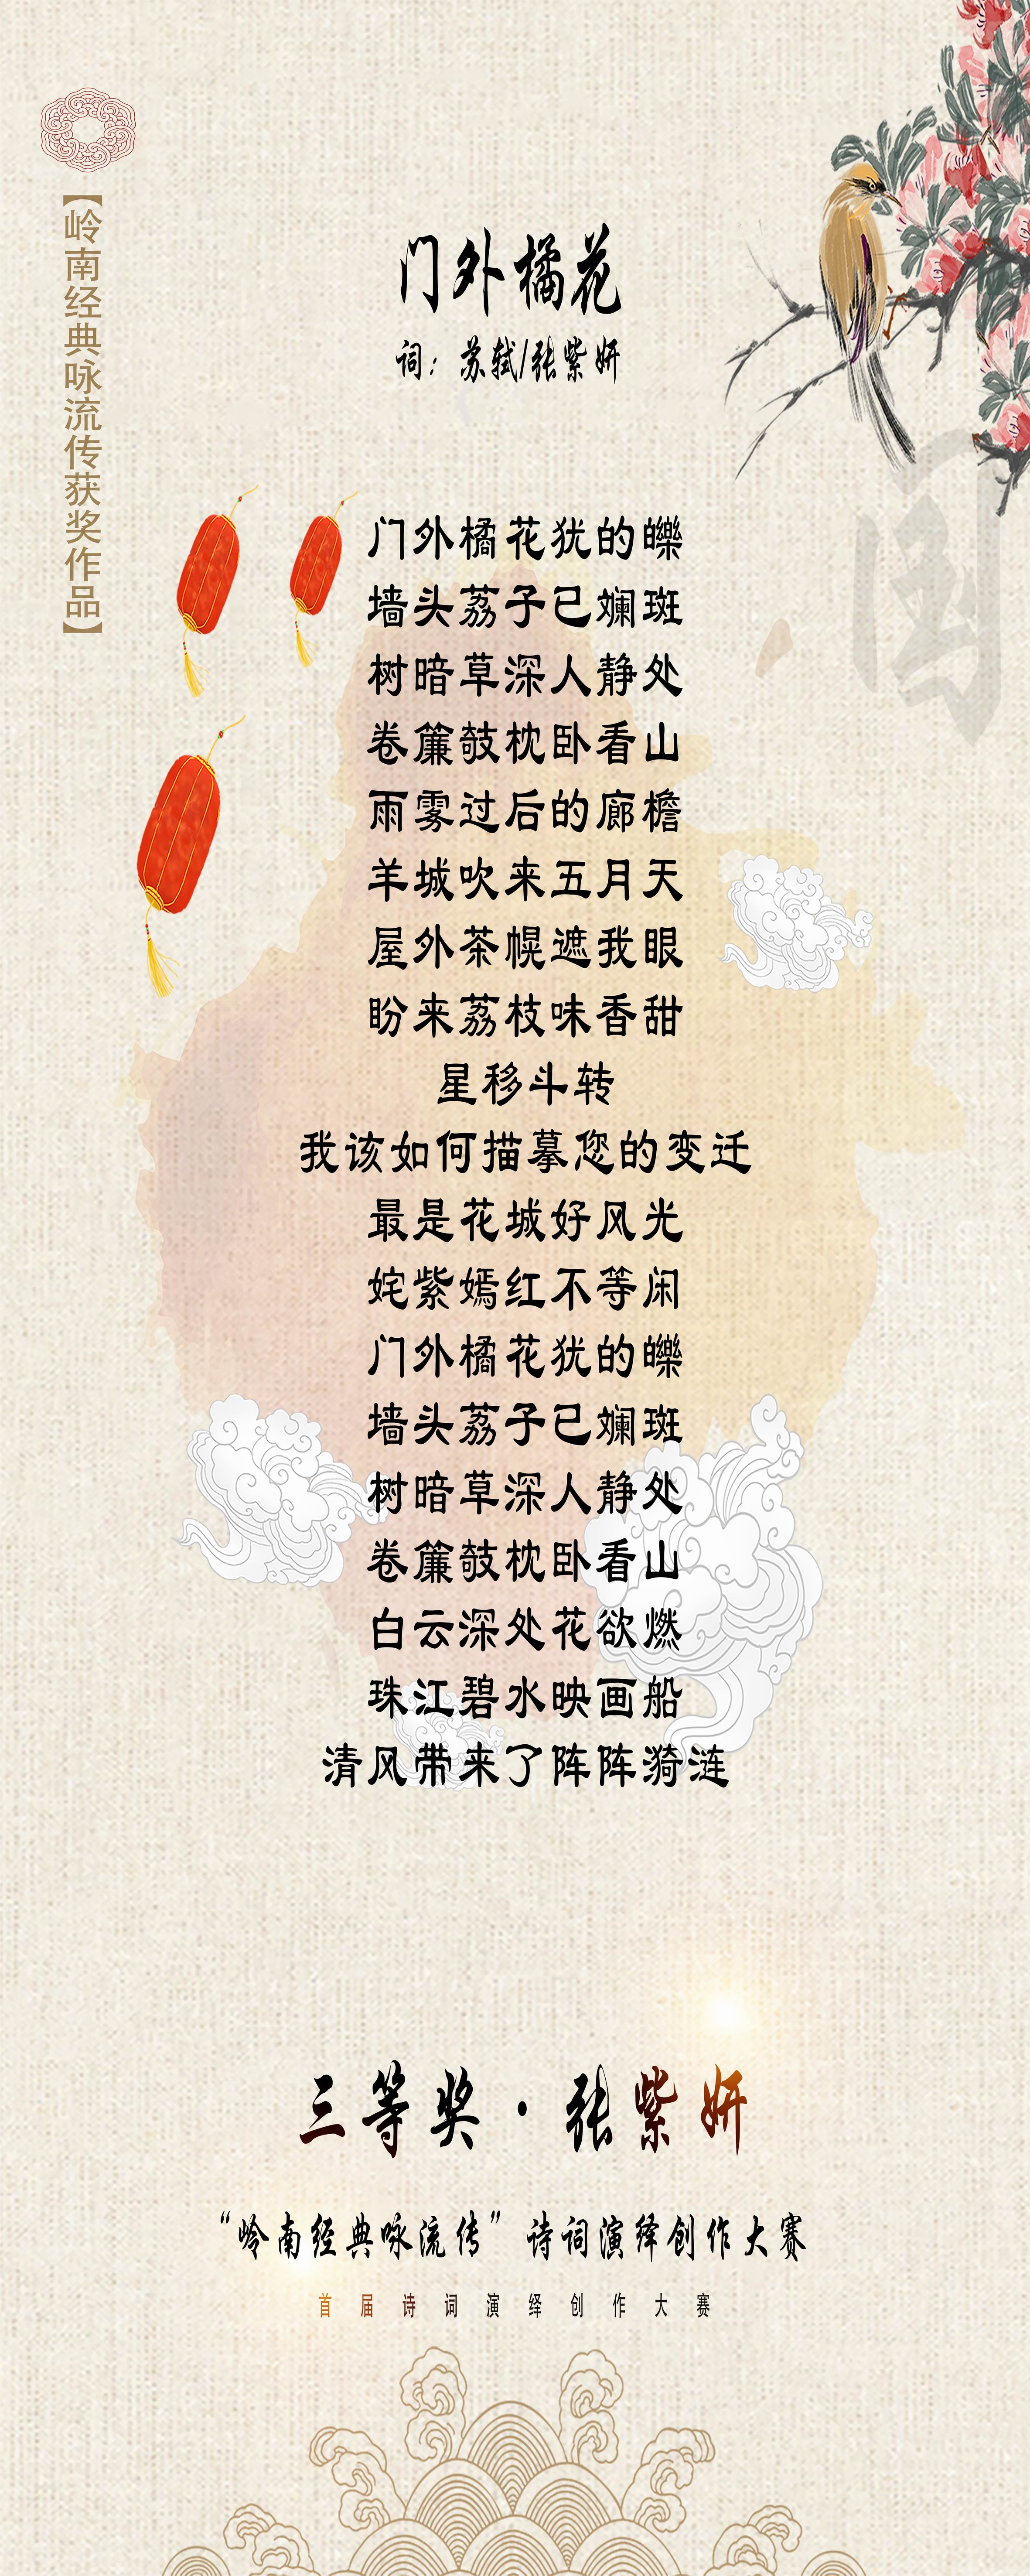 【岭南经典咏流传获奖作品】
门外橘花
词：苏轼/张紫妍
门外橘花犹的皪
墙头荔子已斓斑
树暗草深人静处
卷簾攲枕卧看山
雨雾过后的廊檐
羊城吹来五月天
屋外茶幌遮我眼
盼来荔枝味香甜
星移斗转
我该如何描摹您的变迁
最是花城好风光
姹紫嫣红不等闲
门外橘花犹的皪
墙头荔子已斓斑
树暗草深人静处
卷簾攲枕卧看山
白云深处花欲燃
珠江碧水映画船
清风带来了阵阵漪涟
三等奖·张紫妍
“岭南经典咏流传”诗词演绎创作大赛
首届诗词演绎创作大赛